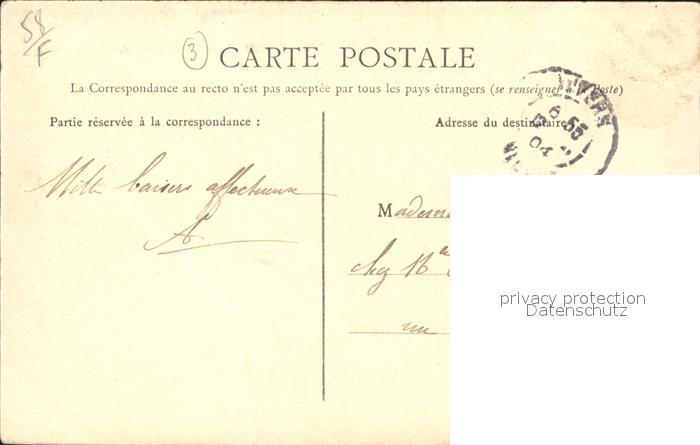 58/F
3
CARTE POSTALE
La Correspondance au recto n'est pas acceptée par tous les pays étrangers (se renseigner à la Poste)
Partie réservée à la correspondance :
Adresse du destinataire
6 55
04
Mille baisers affectueux
A
Mademoi
chez Mme
rue
privacy protection
Datenschutz